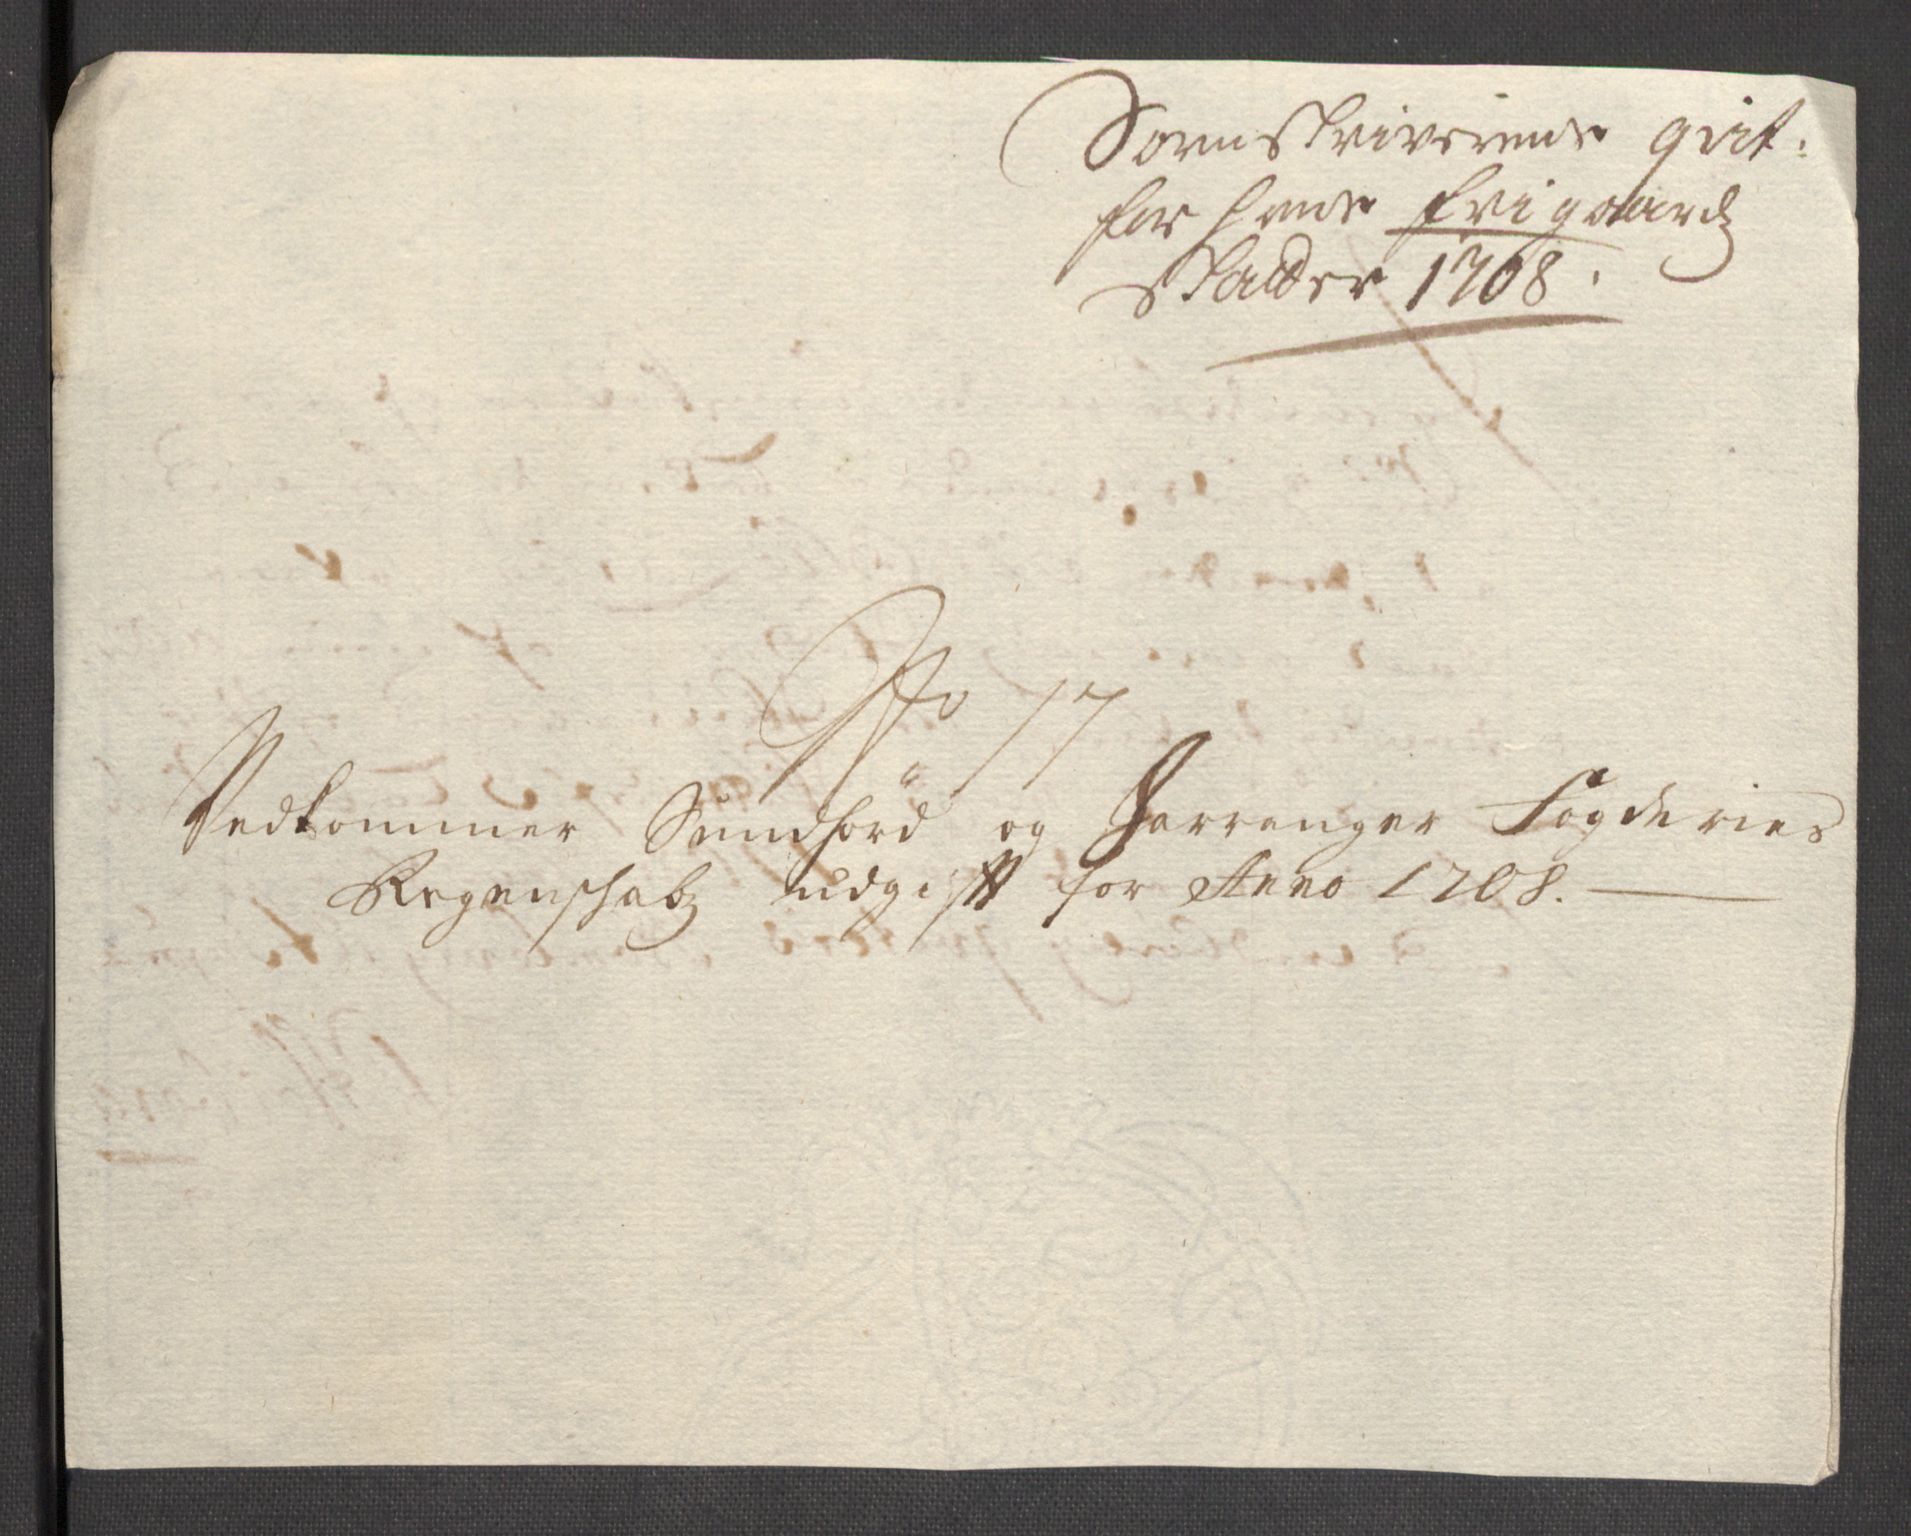 Sorenskriverens qvit:
for hans frigaardz
skatter 1708.
No 17
Vedkommer Sundhord og Harranger Fogderies
Regenschabz udgifft for Anno 1708.